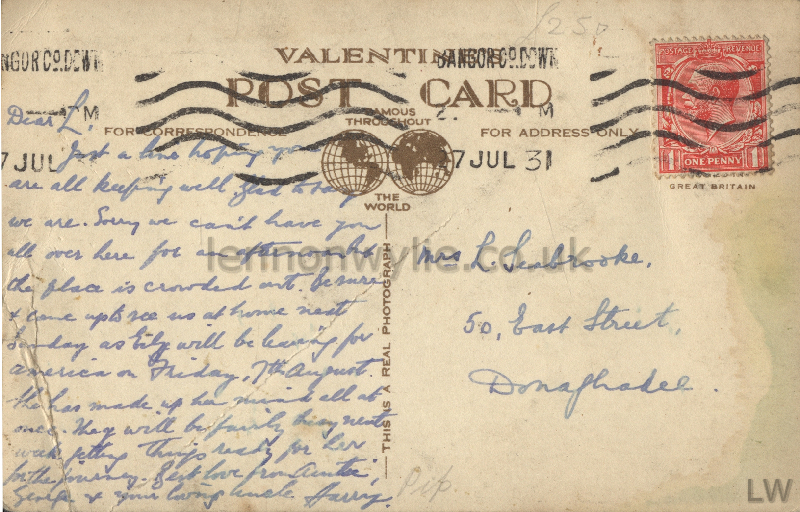 £25p
VALENTINE'S
POST CARD
FAMOUS
THROUGHOUT
THE
WORLD
FOR CORRESPONDENCE
FOR ADDRESS ONLY
BANGOR CO. DOWN
BANGOR CO. DOWN
M
M
7 JUL
27 JUL 31
POSTAGE REVENUE
1 ONE PENNY 1
GREAT BRITAIN
Dear L,
Just a line hoping you
are all keeping well glad to say
we are. Sorry we can't have you
all over here for an afternoon but
the place is crowded out. Be sure
& come up to see us at home next
Sunday as Eily will be leaving for
America on Friday, 7th August.
She has made up her mind all at
once. They will be fairly busy next
week getting things ready for her
for the journey. Best love from Auntie,
George & your loving uncle Harry.
THIS IS A REAL PHOTOGRAPH
Mrs L. Seabrooke,
50, East Street,
Donaghadee.
Pip.
lennonwylie.co.uk
LW